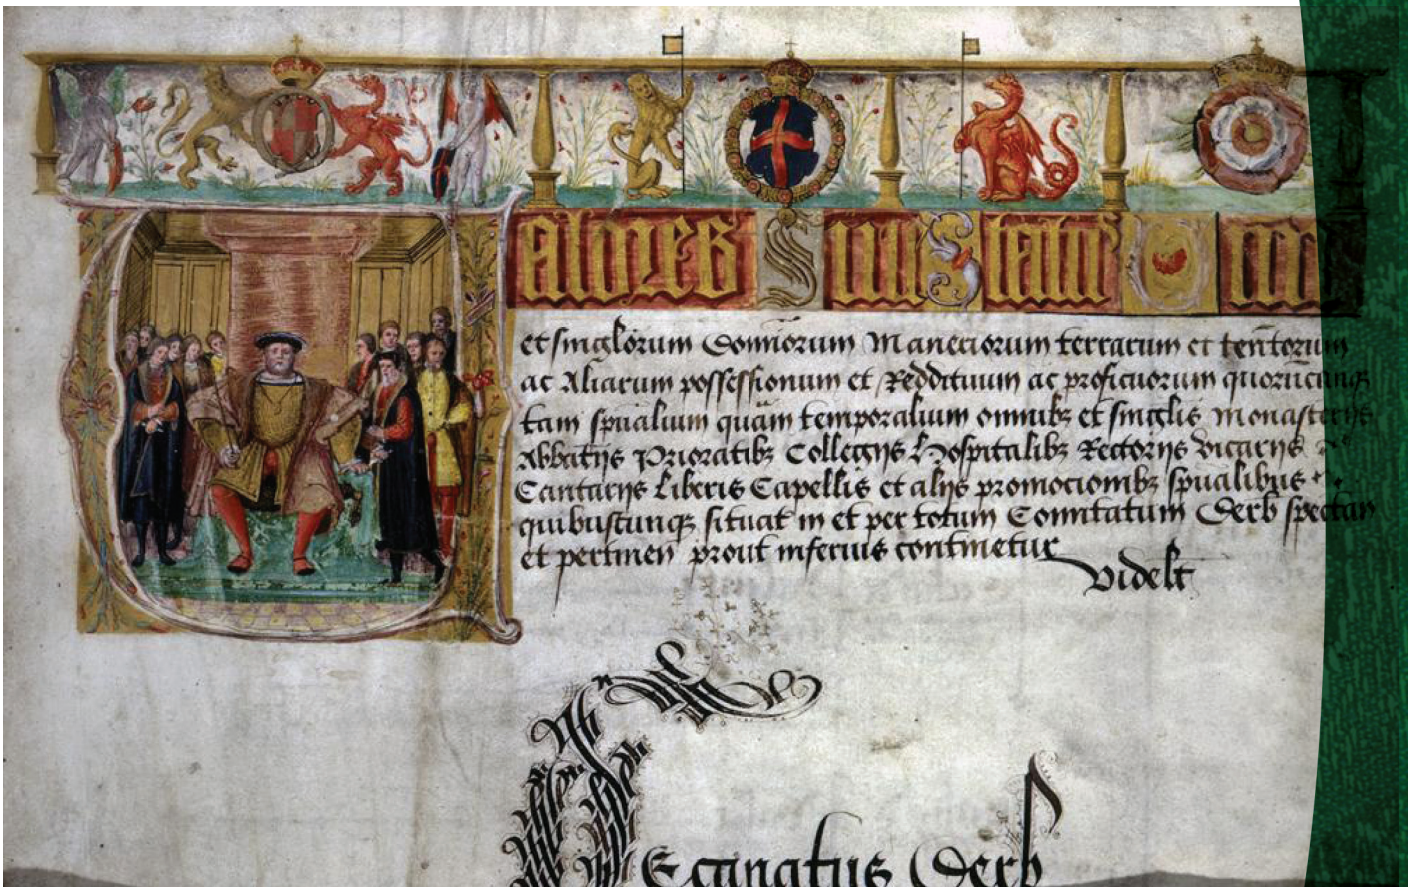 Valores Siue Status
et singlorum Domiorum Maneriorum terrarum et tentorum
ac Aliarum possessionum et Reddituum ac proficuorum quorūcunqꝫ
tam spūalium quam temporalium omnibꝫ et singlis monasterijs
Abbatijs Prioratibꝫ Collegijs Hospitalibꝫ Rectorijs vicarijs
Cantarijs Liberis Capellis et alijs promocionibꝫ spūalibus
quibuscunqꝫ situat in et per totum Comitatum Derb spectan
et pertinen prout inferius continetur
videlt
Decanatus Derb